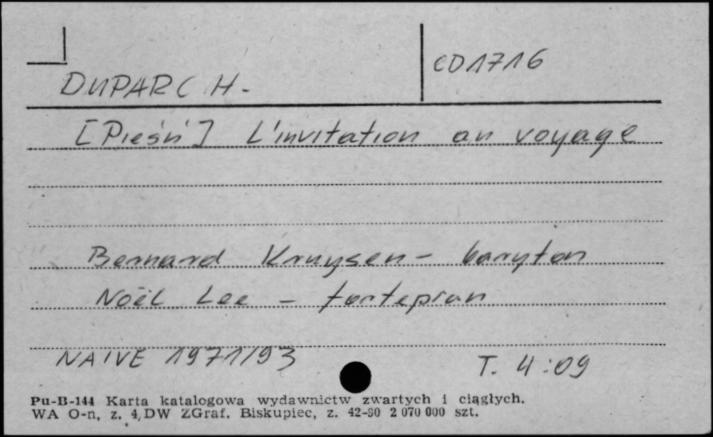 DUPARC H.
CD1716
[Pieśń] L'invitation au voyage
Bernard Kruysen - baryton
Noël Lee - fortepian
NAIVE 1971/93
T. 4:09
Pu-B-144 Karta katalogowa wydawnictw zwartych i ciągłych.
WA O-n, z. 4, DW ZGraf. Biskupiec, z. 42-80 2 070 000 szt.